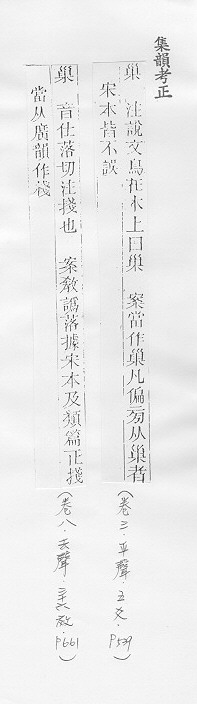 集韻考正
巢 注說文鳥在木上曰巢 案當作巢凡偏旁从巢者
宋本皆不誤
(卷三．平聲．五爻．P539)
巢 音仕落切注掇也 案敎譌落據宋本及類篇正掇
當从廣韻作㧜
(卷八．去聲．三十六效．P661)